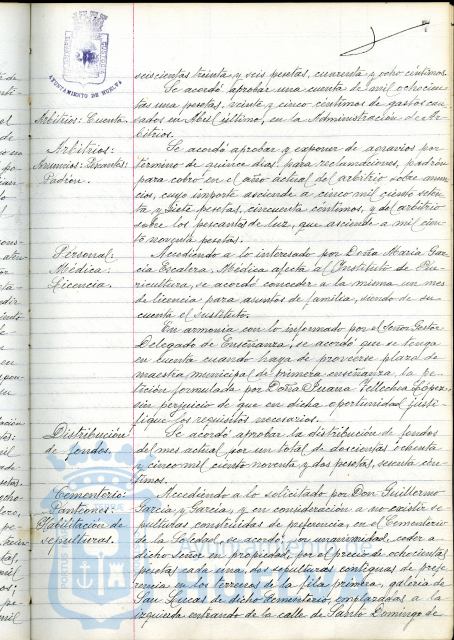 AYUNTAMIENTO DE HUELVA
seiscientas treinta y seis pesetas, cuarenta y ocho céntimos.
Se acordó aprobar una cuenta de mil ochocien
Arbitrios: Cuenta. tas una pesetas, veinte y cinco céntimos de gastos cau
sados en Abril último, en la Administración de Ar
bitrios.
Arbitrios: Se acordó aprobar y exponer de agravios por
Anuncios: Pescantes: término de quince días para reclamaciones, padrón
Padrón. para cobro en el año actual del arbitrio sobre anun
cios, cuyo importe asciende a cinco mil ciento seten
ta y siete pesetas, cincuenta céntimos, y del arbitrio
sobre los pescantes de luz, que asciende a mil cien
to noventa pesetas.
Personal: Accediendo a lo interesado por Doña María Gar
Médica: cía Escalera, Médica afecta al Instituto de Pue
Licencia. ricultura, se acordó conceder a la misma un mes
de licencia para asuntos de familia, siendo de su
cuenta el sustituto.
En armonía con lo informado por el Señor Gestor
Delegado de Enseñanza, se acordó que se tenga
en cuenta cuando haya de proveerse plaza de
maestra municipal de primera enseñanza, la pe
tición formulada por Doña Juana López,
sin perjuicio de que en dicha oportunidad justi
fique los requisitos necesarios.
Distribución Se acordó aprobar la distribución de fondos
de fondos. del mes actual por un total de doscientas ochenta
y cinco mil ciento noventa y dos pesetas, sesenta cén
timos.
Cementerio: Accediendo a lo solicitado por Don Guillermo
Panteones: García y García, y en consideración a no existir se
Habilitación de pulturas construidas de preferencia, en el Cementerio
sepulturas. de la Soledad, se acordó por unanimidad, ceder a
dicho señor en propiedad, por el precio de ochocientas
pesetas cada una, dos sepulturas contiguas de prefe
rencia en los terrenos de la fila primera, galería de
San Lucas de dicho Cementerio, emplazadas a la
izquierda entrando de la calle de Santo Domingo de